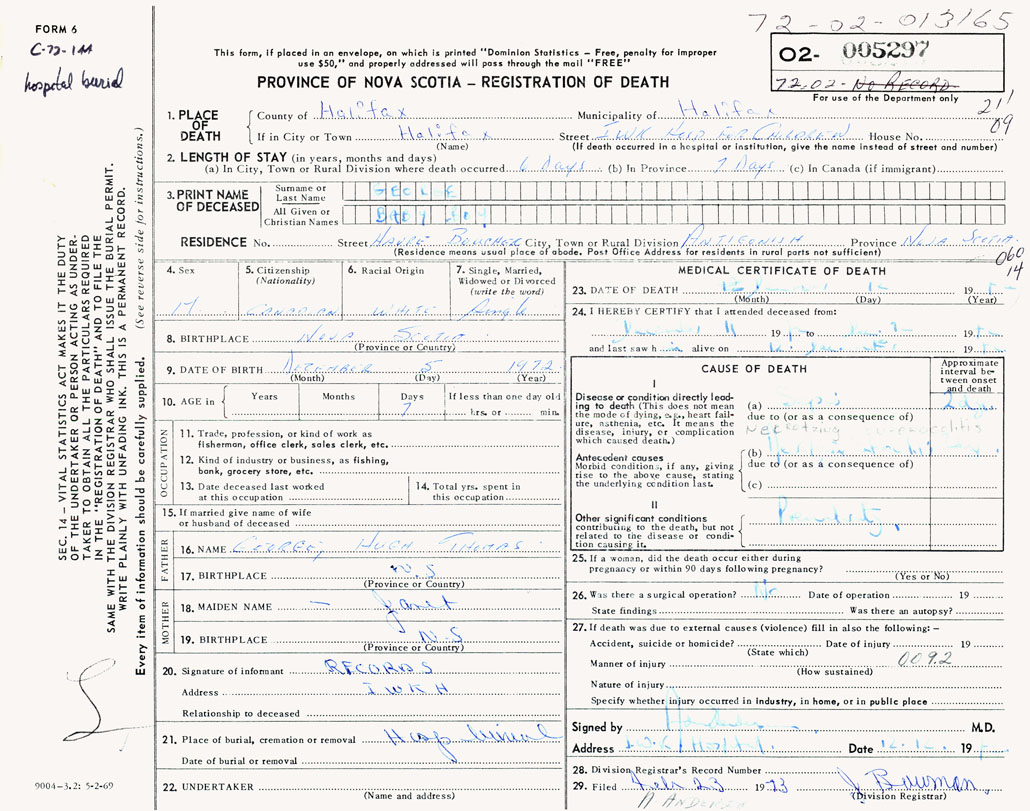 FORM 6
C-72-144
hospital burial
72-02-013165
02- 005297
72.02- No RECORD
For use of the Department only
21'
09
This form, if placed in an envelope, on which is printed "Dominion Statistics – Free, penalty for improper
use $50," and properly addressed will pass through the mail "FREE"
PROVINCE OF NOVA SCOTIA – REGISTRATION OF DEATH
1. PLACE OF DEATH
County of Halifax Municipality of Halifax
If in City or Town Halifax Street IWK Hosp FOR CHILDREN House No.
(Name) (If death occurred in a hospital or institution, give the name instead of street and number)
2. LENGTH OF STAY (in years, months and days)
(a) In City, Town or Rural Division where death occurred 6 Days (b) In Province 7 Days (c) In Canada (if immigrant)
3. PRINT NAME OF DECEASED
Surname or Last Name
All Given or Christian Names BABY BOY
RESIDENCE No. Street HAVRE BOUCHER City, Town or Rural Division ANTIGONISH Province NOVA SCOTIA
(Residence means usual place of abode. Post Office Address for residents in rural parts not sufficient)
060
14
4. Sex M
5. Citizenship (Nationality) CANADIAN
6. Racial Origin WHITE
7. Single, Married, Widowed or Divorced (write the word) Single
8. BIRTHPLACE NOVA SCOTIA
(Province or Country)
9. DATE OF BIRTH 5 1972
(Month) (Day) (Year)
10. AGE in Years Months Days 7 If less than one day old hrs. or min.
OCCUPATION
11. Trade, profession, or kind of work as
fisherman, office clerk, sales clerk, etc.
12. Kind of industry or business, as fishing,
bank, grocery store, etc.
13. Date deceased last worked at this occupation
14. Total yrs. spent in this occupation
15. If married give name of wife
or husband of deceased
FATHER
16. NAME HUGH THOMAS
17. BIRTHPLACE N.S
(Province or Country)
MOTHER
18. MAIDEN NAME – Janet
19. BIRTHPLACE N.S
(Province or Country)
20. Signature of informant RECORDS
Address IWKH
Relationship to deceased
21. Place of burial, cremation or removal Hosp burial
Date of burial or removal
22. UNDERTAKER
(Name and address)
MEDICAL CERTIFICATE OF DEATH
23. DATE OF DEATH 12 19
(Month) (Day) (Year)
24. I HEREBY CERTIFY that I attended deceased from:
19 to 19
and last saw h alive on 19
CAUSE OF DEATH
Approximate interval between onset and death
I
Disease or condition directly leading to death (This does not
mean the mode of dying, e.g., heart failure, asthenia, etc. It means the
disease, injury, or complication
which caused death.)
(a) Sepsis
due to (or as a consequence of)
NECROTIZING
Antecedent causes
Morbid conditions, if any, giving
rise to the above cause, stating
the underlying condition last.
(b)
due to (or as a consequence of)
(c)
II
Other significant conditions
contributing to the death, but not
related to the disease or condition causing it.
25. If a woman, did the death occur either during
pregnancy or within 90 days following pregnancy?
(Yes or No)
26. Was there a surgical operation? No Date of operation 19
State findings Was there an autopsy?
27. If death was due to external causes (violence) fill in also the following:–
Accident, suicide or homicide? Date of injury 19
(State which)
Manner of injury 0092
(How sustained)
Nature of injury
Specify whether injury occurred in industry, in home, or in public place
Signed by M.D.
Address IWK Hospital Date 19
28. Division Registrar's Record Number
29. Filed Feb 23 1973 J Bowman
(Division Registrar)
SEC. 14 – VITAL STATISTICS ACT MAKES IT THE DUTY
OF THE UNDERTAKER OR PERSON ACTING AS UNDER-
TAKER TO OBTAIN ALL THE PARTICULARS REQUIRED
IN THE "REGISTRATION OF DEATH" AND TO FILE THE
SAME WITH THE DIVISION REGISTRAR WHO SHALL ISSUE THE BURIAL PERMIT.
WRITE PLAINLY WITH UNFADING INK. THIS IS A PERMANENT RECORD.
Every item of information should be carefully supplied. (See reverse side for instructions.)
9004-3.2: 5-2-69